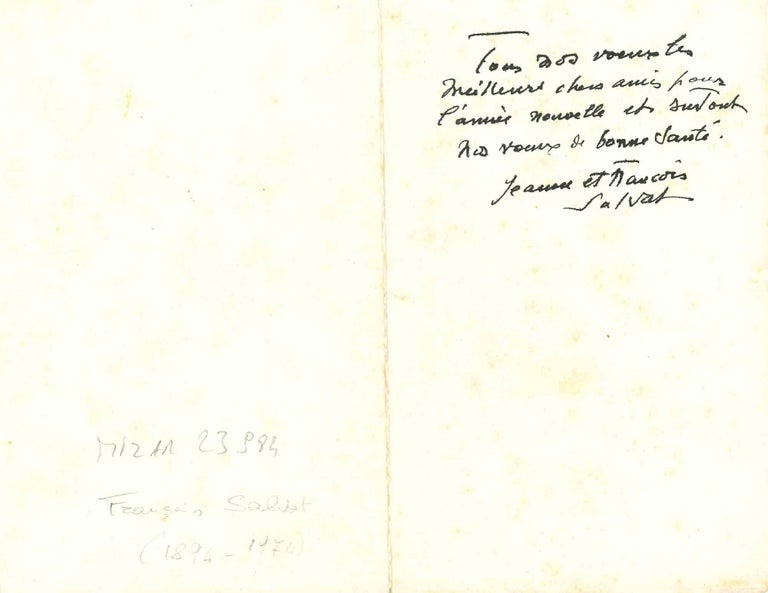 Tous nos voeux les
meilleurs chers amis pour
l'année nouvelle et surtout
nos voeux de bonne santé.
Jeanne et Francois
Salvat
MIZAR 23 984
François Salvat
(1894 - 1974)